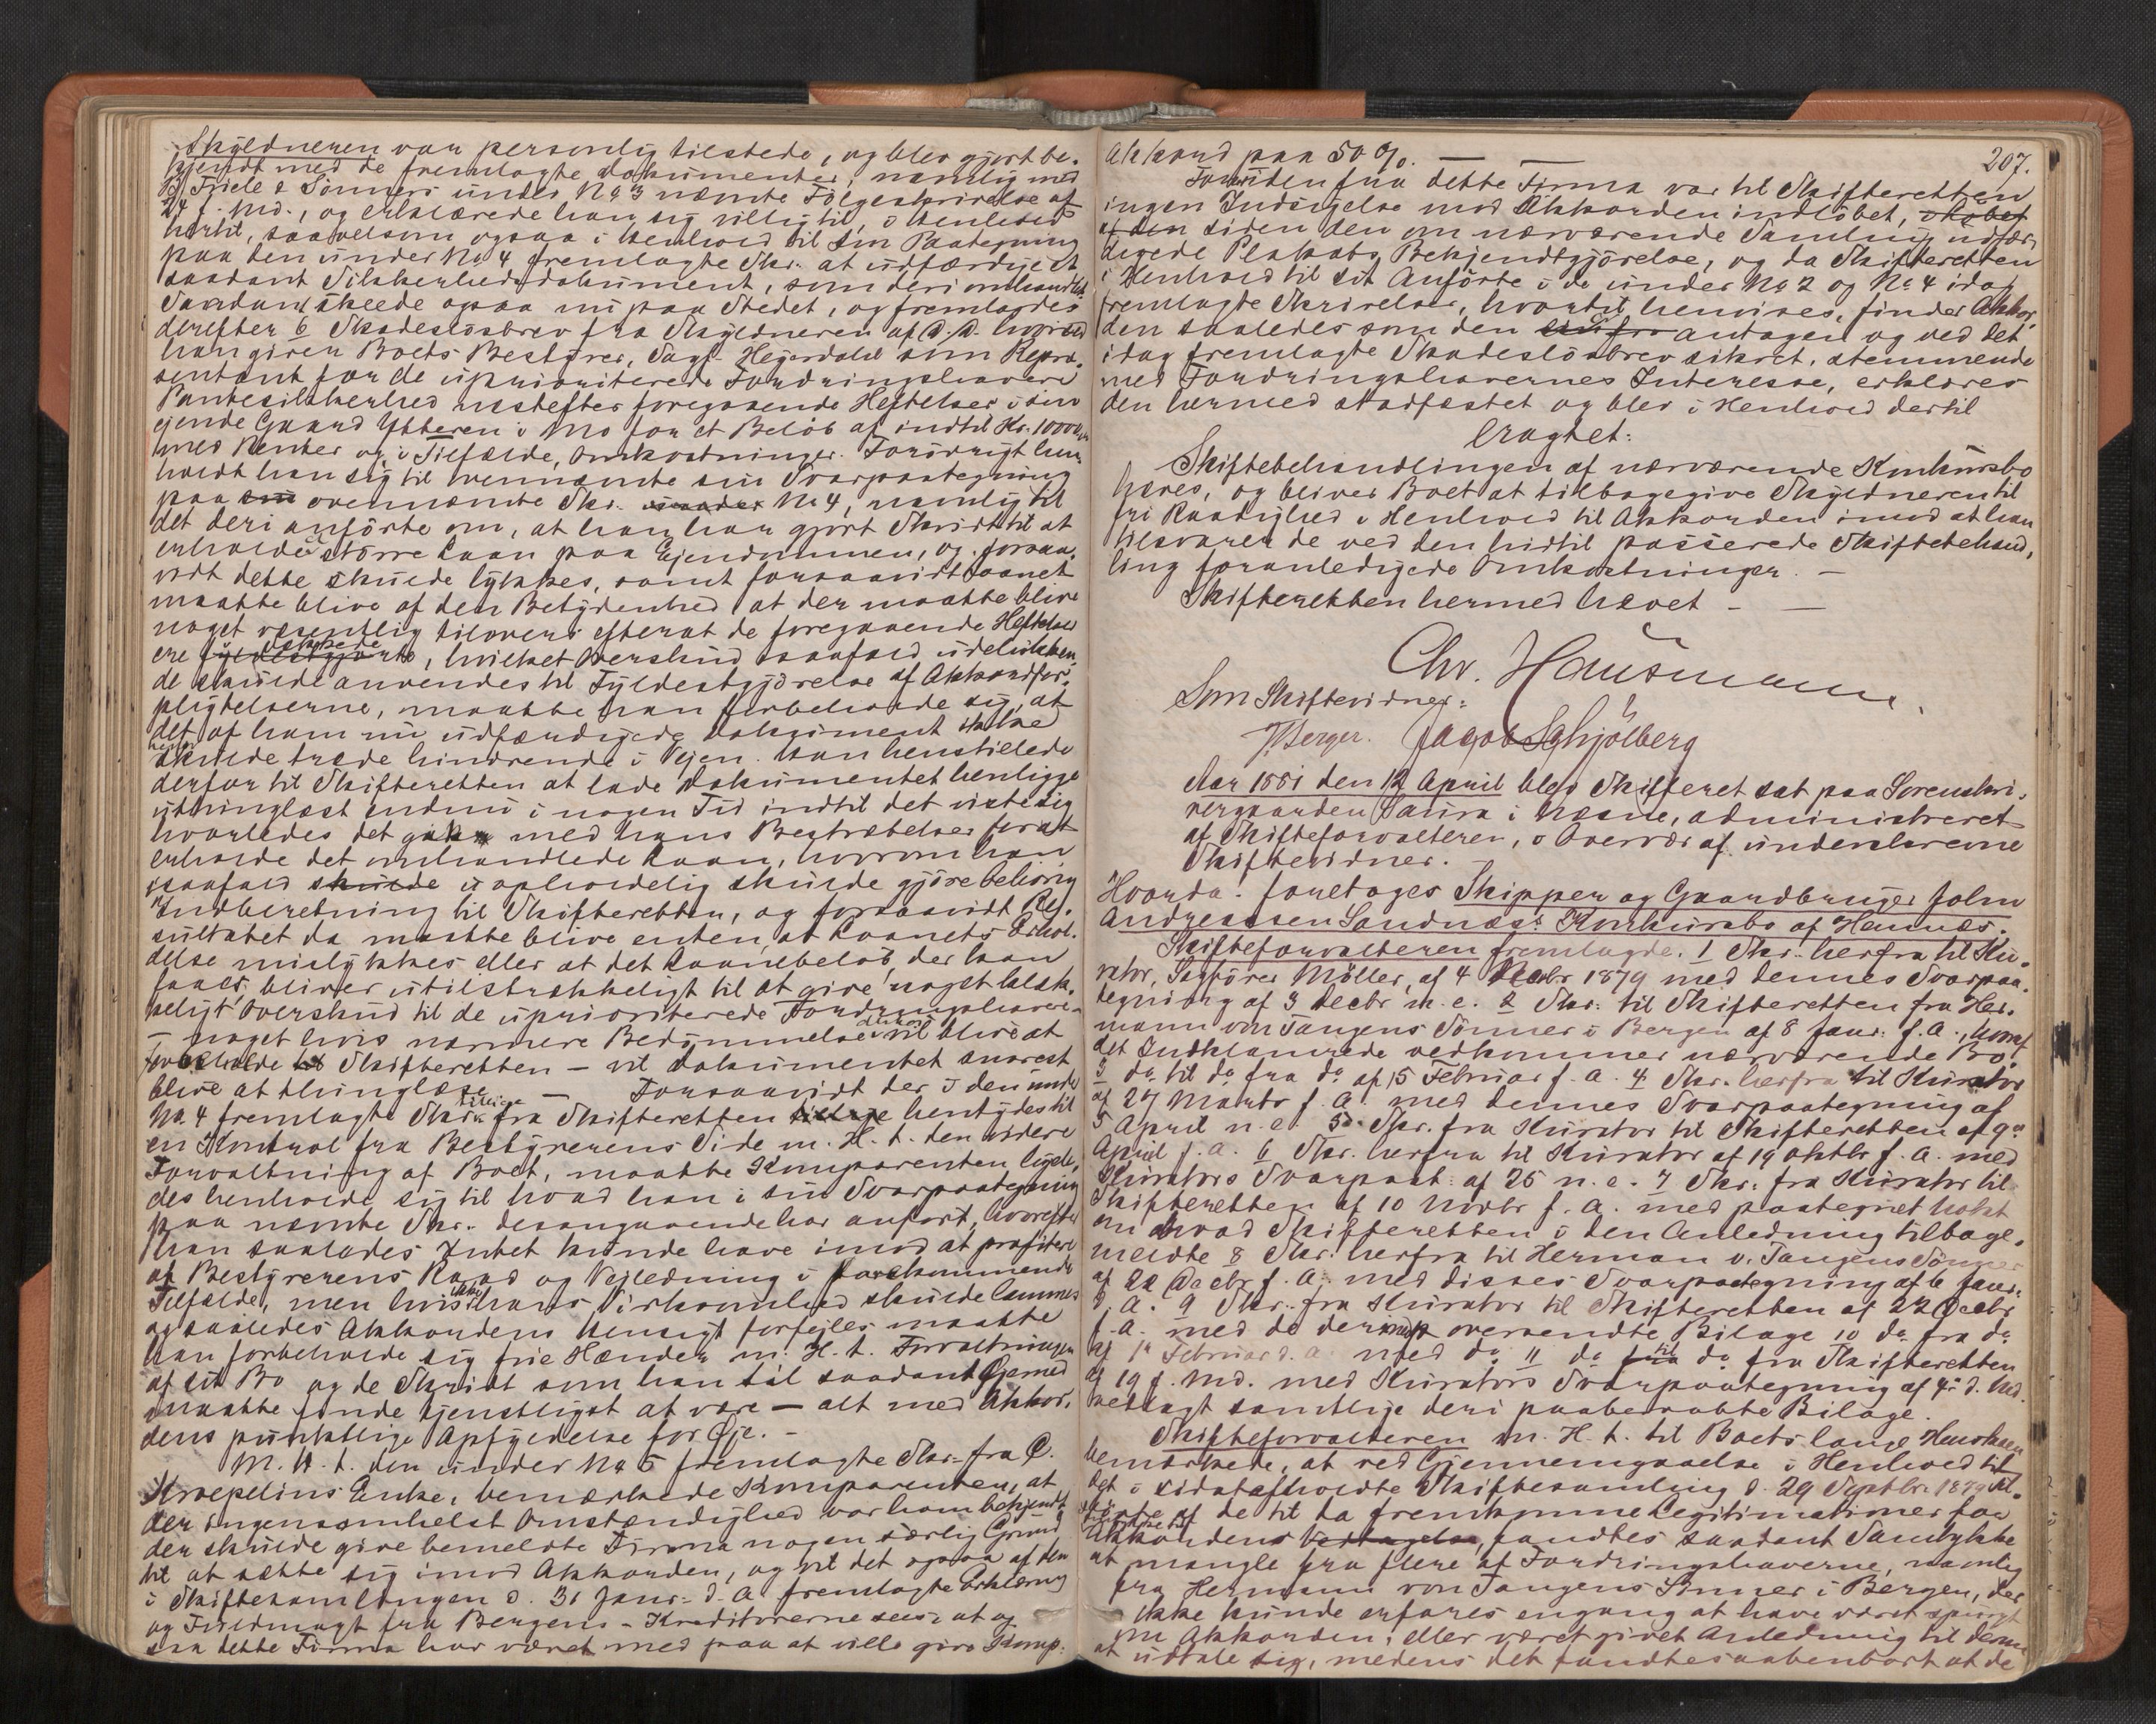 Skyldneren var personlig tilstede, og blev gjort be-
kjendt med de fremlagte Dokumenter, nemlig med
B. Friele & Sönners under No 3 nævnte Fölgeskrivelse af
24 f. Md., og erklærede han sig villig til, i Henhold
hertil, saavelsom ogsaa i Henhold til sin Paategning
paa den under No 4 fremlagte Skr. at udfærdige et
saadant Sikkerhedsdokument, som deri omhandlet.
Saadant skeede ogsaa nu paa Stedet, og fremlagdes
derefter 6 Skadeslösbrev fra Skyldneren af d. D. hvorved
han giver Boets Bestyrer, Sagf. Hejerdahl som Repræ-
sentant for de uprioriterede Fordringshavere
Pantesikkerhed næstefter foregaaende Heftelser i sin
ejende Gaard Ytteren i Mo for et Belöb af indtil Kr. 10000,00
med Renter og i Tilfælde, Omkostninger. Forövrigt hen-
holdt han sig til svennævnte sin Svarpaategning
paa ovennævnte Skr. No 4, nemlig til
det deri anförte om, at han har gjort Skridt til at
erholde et större Laan paa Ejendommen, og forsaa-
vidt dette skulde lykkes, samt forsaavidt Laanet
maatte blive af den Betydenhed at der maatte blive
noget væsentlig tilovers efterat de foregaaende Heftelser
ere fyldestgjorte dækkede, hvilket Overskud isaafald udelukken-
de skulde anvendes til Fyldestgjörelse af Akkordfor-
pligtelserne, maatte han forbeholde sig, at
det af ham nu udfærdigede Dokument ikke
heri skulde træde hindrende i Vejen. Han henstillede
derfor til Skifteretten at lade Dokumentet henligge
uthinglæst endnu i nogen Tid indtil det viste sig
hvorledes det gik med hans Bestræbelser for at
erholde det omhandlede Laan, hvorom han
isaafald skulde uopholdelig skulde gjöre behörig
Indberetning til Skifteretten, og forsaavidt Re-
sultatet da maatte blive enten, at Laanets Erhol-
delse mislykkes eller at det Laanebelöb, der kan
faaes bliver utilstrækkeligt til at give noget
Overskud til de uprioriterede Fordringshavere
- noget hvis nærmere Bedömmelse vil blive at
forbeholde Skifteretten - vil Dokumentet snarest
blive at thinglæse. — Forsaavidt der i den under
No. 4 fremlagte Skr. tillige fra Skifteretten hentydes til
en Kontrol fra Bestyrerens Side m. H. t. den videre
Forvaltning af Boet, maatte Komparenten ligele-
des henholde sig til hvad han i sin Svarpaategning
paa nævnte Skr. desangaaende har anfört, hvorefter
han saaledes Intet kunde have imod at profitere
af Bestyrerens Raad og Vejledning i forekommende
Tilfælde, men hvis hans Virksomhed skulde lammes
og saaledes Akkordens Hensigt forfejles maatte
han forbeholde sig frie Hænder m. H. t. Forvaltningen
af sit Bo og de Skridt som han til saadant Öjemed
maatte finde tjenstligst at være — alt med Akkor-
dens punktlige Opfyldelse for Öje. -
M. H. t. den under No 5 fremlagte Skr. fra C.
Kroepelins Enke, bemærkede Komparenten, at
der ingensomhelst Omstændighed var ham bekjendt
der skulde give bemeldte Firma nogen særlig Grund
til at sætte sig imod Akkorden, og vil det ogsaa af den
i Skiftesamlingen d. 31 Janr. d. A. fremlagte Erklæring
og Fuldmagt fra Bergens-Kreditorerne sees, at og-
saa dette Firma har været med paa at ville give Komp.
207.
Akkord paa 50 %. — —
Foruden fra dette Firma var til Skifteretten
ingen Indsigelse mod Akkorden indlöbet,
siden den om nærværende Samling udfær-
digede Plakats Bekjendtgjörelse, og da Skifteretten
i Henhold til sit Anförte i de under No 2 og No. 4 idag
fremlagte Skrivelser, hvortil henvises, finder Akkor-
den saaledes som den antagen og ved det
idag fremlagte Skadeslösbrev sikret, stemmende
med Fordringshavernes Interesse, erklæres
den hermed stadfæstet og blev i Henhold dertil
Eragtet:
Skiftebehandlingen af nærværende Konkursbo
hæves, og bliver Boet at tilbagegive Skyldneren til
fri Raadighed i Henhold til Akkorden imod at han
tilsvarer de ved den hidtil passerede Skiftebehand-
ling foranledigede Omkostninger. —
Skifteretten hermed hævet - —
Chr. Hausmann.
Som Skiftevidner:
Berger. Jacob Schjölberg
Aar 1881 den 12 April blev Skifteret sat paa Sorenskri-
vergaarden Saura i Næsne, administreret
af Skifteforvalteren, i Overvær af underskrevne
Skiftevidner.
Hvorda: foretoges Skipper og Gaardbruger John
Andreassen Sandnæs's Konkursbo af Hemnæs.
Skifteforvalteren fremlagde. 1 Skr. herfra til Ku-
rator, Sagförer Möller, af 4 1879 med dennes Svarpaa-
tegning af 3 Decbr n. e. 2 Skr. til Skifteretten fra Her-
mann von Tangens Sönner i Bergen af 8 Janr. f. A., hvoraf
det Indklamrede vedkommer nærværende Bo.
3 do til do fra do af 15 Februar f. A. 4 Skr. herfra til Kurator
af 29 Marts f. A. med dennes Svarpaategning af
5 April n. e. 5 Skr. fra Kurator til Skifteretten af 9de
April f. A. 6 Skr. herfra til Kurator af 19 Oktbr f. A. med
Kurators Svarpaat. af 25 n. e. 7 Skr. fra Kurator til
Skifteretten af 10 Novbr f. A. med paategnet Notat
om hvad Skifteretten i den Anledning tilbage-
meldte 8 Skr. herfra til Herman v. Tangens Sönner
af 22 Decbr f. A. med disses Svarpaategning af 6 Janr.
d. A. 9 Skr. fra Kurator til Skifteretten af 22 Decbr
f. A. med de dermed oversendte Bilage 10 do fra do
af 1ste Februar d. A. med do 11 do til do fra Skifteretten
af 19 f. Md. med Kurators Svarpaategning af 4de d. Md.
vedlagt samtlige deri paaberaabte Bilage.
Skifteforvalteren m. H. t. til Boets lange Henstaaen
bemærkede, at ved Gjennemgaaelse i Henhold til
det i sidstafholdte Skiftesamling d. 29 Septbr. 1879
af de til da fremkomne Legitimationer for
Akkordens Vedtagelse, fandtes saadant Samtykke
at mangle fra flere af Fordringshaverne, nemlig
fra Hermann von Tangens Sönner i Bergen, der
ikke kunde erfares engang at have været spurgt
om Akkorden, eller været givet Anledning til derom
at udtale sig, medens det fandtes aabenbart at de